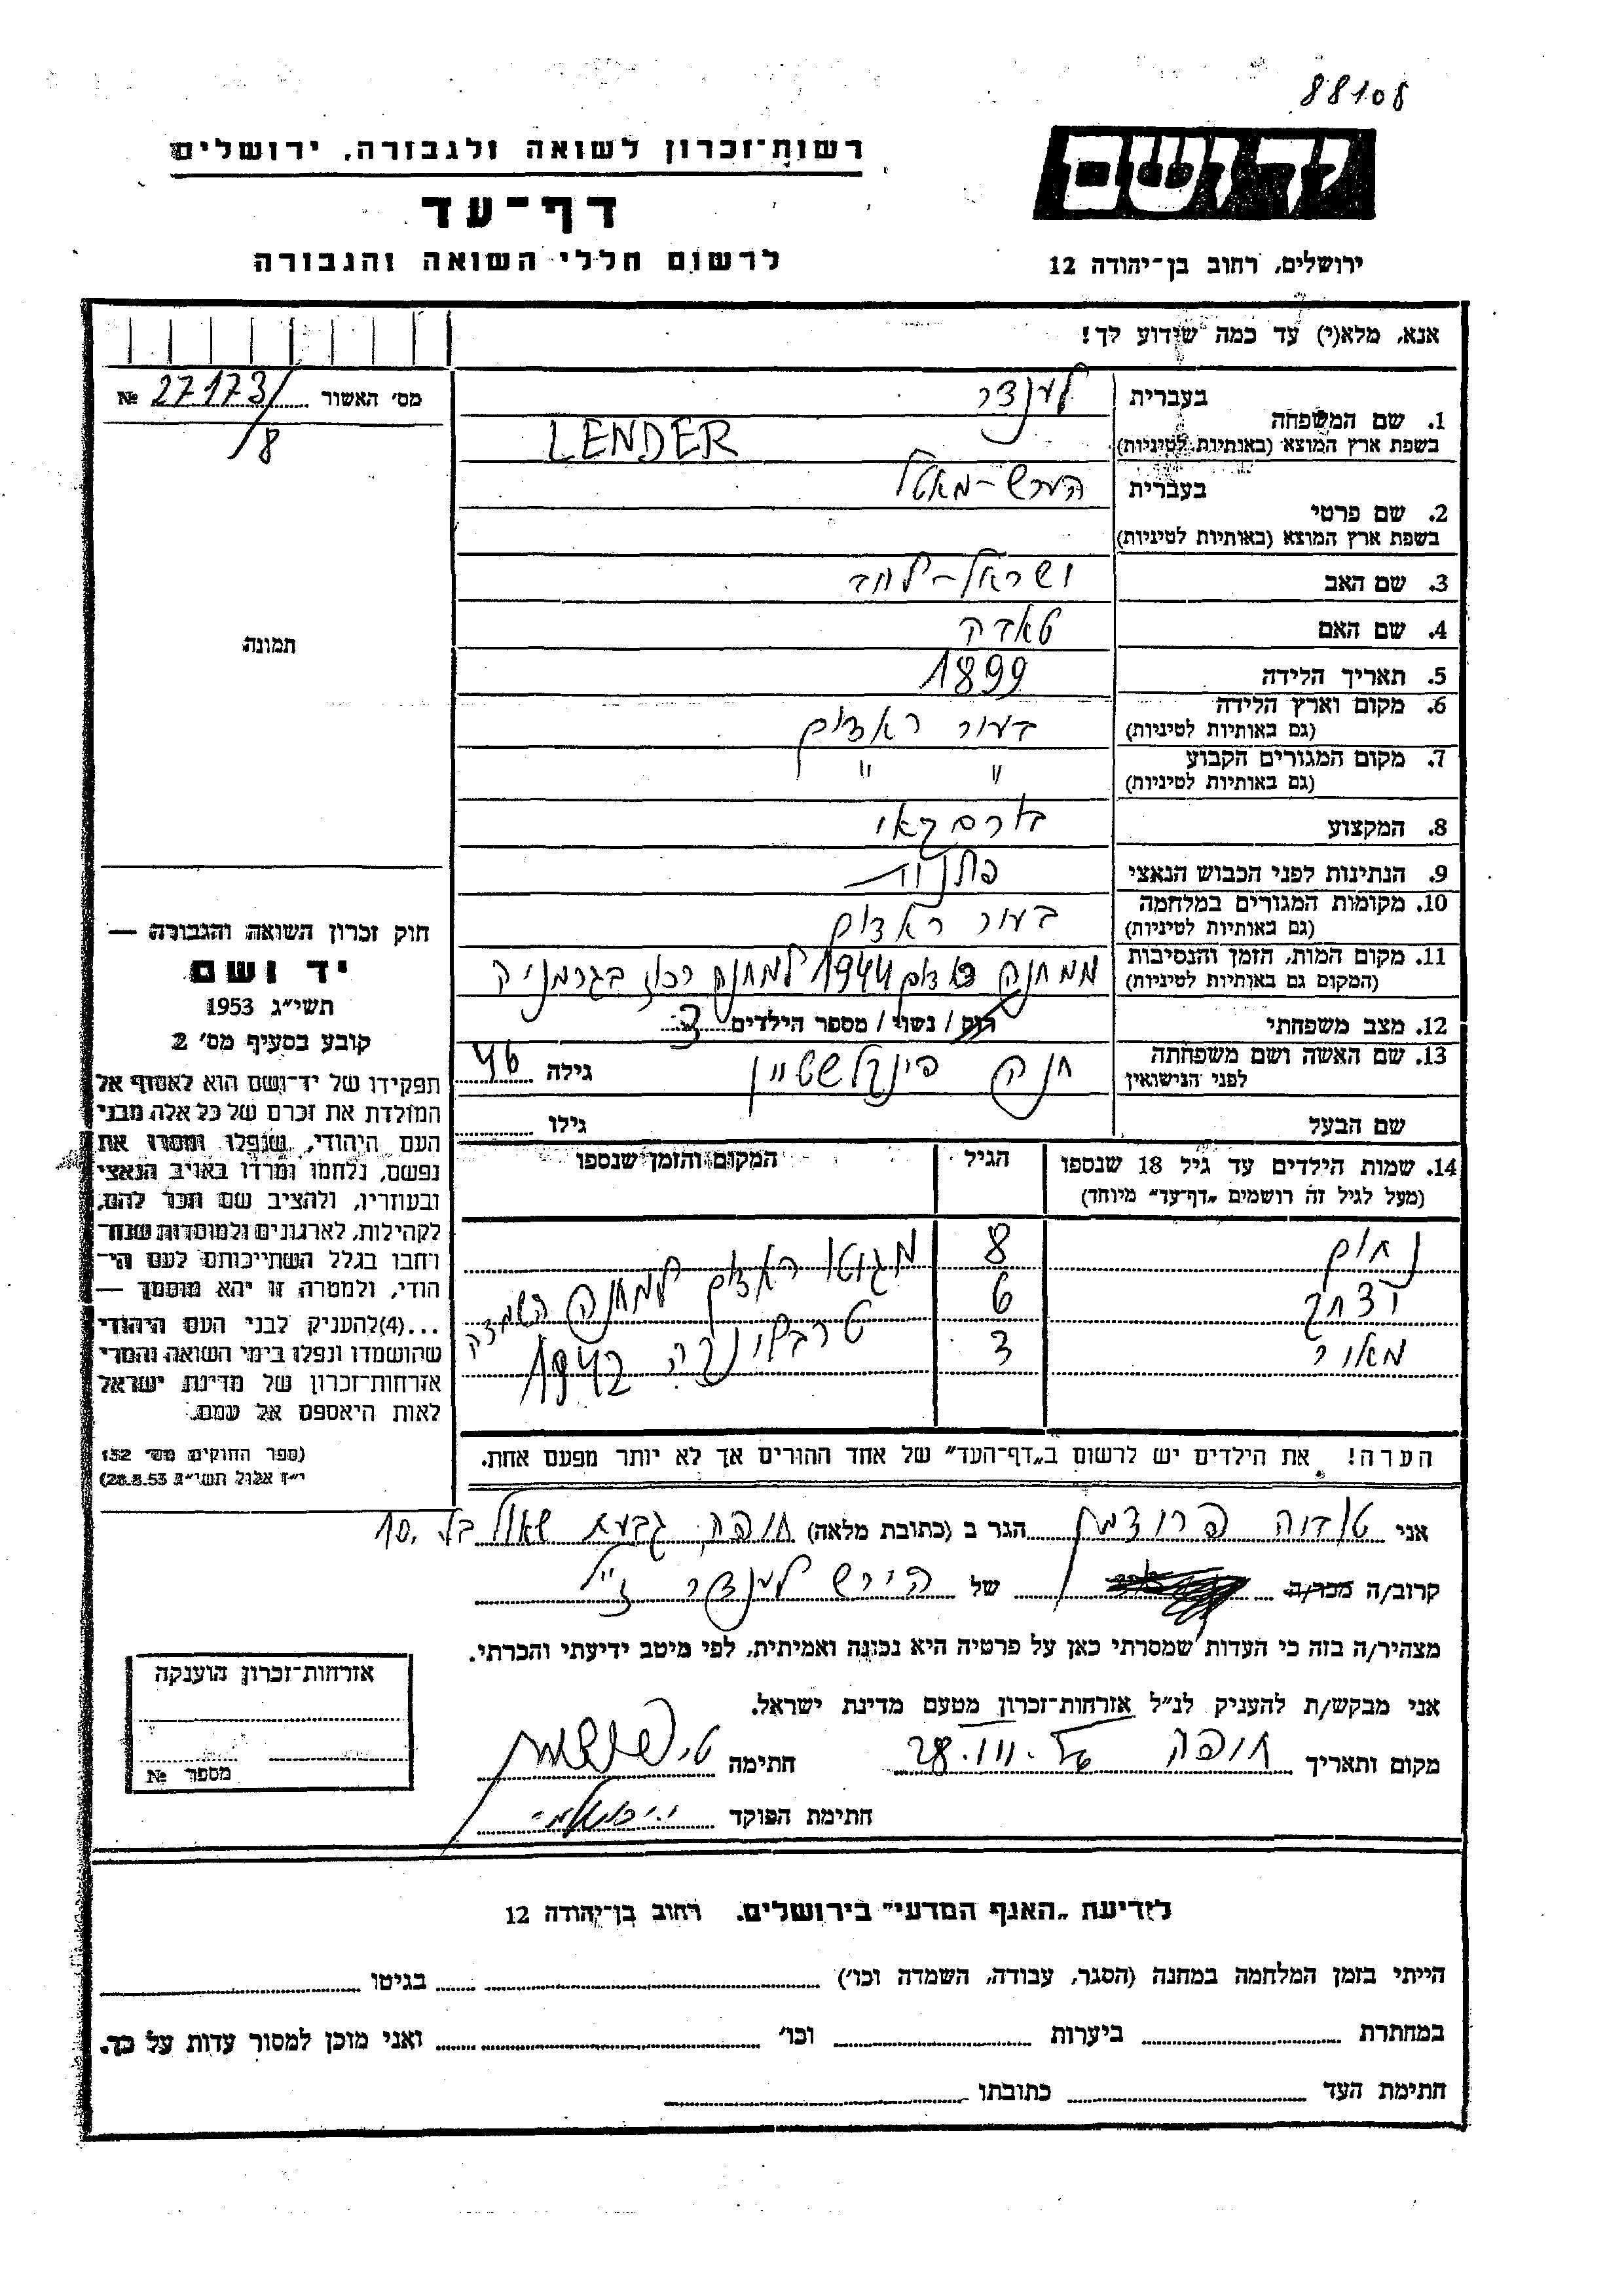 88108
רשות־זכרון לשואה ולגבורה, ירושלים
דף־עד
לרשום חללי השואה והגבורה
יד ושם
ירושלים, רחוב בן־יהודה 12
אנא, מלא(י) עד כמה שידוע לך!
מס' האשור 27173/ №
/8
1. שם המשפחה
בעברית לענדר
בשפת ארץ המוצא (באותיות לטיניות) LENDER
2. שם פרטי
בעברית הערש-מאטל
בשפת ארץ המוצא (באותיות לטיניות)
3. שם האב ישראל-
4. שם האם
5. תאריך הלידה 1899
6. מקום וארץ הלידה ראדום
(גם באותיות לטיניות)
7. מקום המגורים הקבוע " "
(גם באותיות לטיניות)
8. המקצוע
9. הנתינות לפני הכבוש הנאצי
10. מקומות המגורים במלחמה ראדום
(גם באותיות לטיניות)
11. מקום המות, הזמן והנסיבות ממחנה 1944 למחנה רכוז בגרמניה
(המקום גם באותיות לטיניות)
12. מצב משפחתי רוק / נשוי / מספר הילדים 3
13. שם האשה ושם משפחתה חנה פינקלשטיין גילה 46
לפני הנישואין
שם הבעל גילו
14. שמות הילדים עד גיל 18 שנספו הגיל המקום והזמן שנספו
(מעל לגיל זה רושמים „דף־עד" מיוחד)
נחום 8 מגטו ראדום למחנה השמדה
יצחק 6 טרבלינקה 1942
מאיר 3
הערה! את הילדים יש לרשום ב„דף־העד" של אחד ההורים אך לא יותר מפעם אחת.
תמונה
חוק זכרון השואה והגבורה —
יד ושם
תשי"ג 1953
קובע בסעיף מס' 2
תפקידו של יד־ושם הוא לאסוף אל
המולדת את זכרם של כל אלה מבני
העם היהודי, שנפלו ומסרו את
נפשם, נלחמו ומרדו באויב הנאצי
ובעוזריו, ולהציב שם וזכר להם,
לקהילות, לארגונים ולמוסדות שנח־
רחבו בגלל השתייכותם לעם הי־
הודי, ולמטרה זו יהא מוסמך —
...(4) להעניק לבני העם היהודי
שהושמדו ונפלו בימי השואה והמרי
אזרחות־זכרון של מדינת ישראל
לאות היאספם אל עמם.
(ספר החוקים מס' 132
י"ז אלול תשי"ג 28.8.53)
אני טובה פרידמן הגר ב (כתובת מלאה) חיפה, גבעת שאול 10.
קרוב/ה מכר/ה של הירש לענדר ז"ל
מצהיר/ה בזה כי העדות שמסרתי כאן על פרטיה היא נכונה ואמיתית, לפי מיטב ידיעתי והכרתי.
אני מבקש/ת להעניק לנ"ל אזרחות־זכרון מטעם מדינת ישראל.
מקום ותאריך חיפה 28.III. חתימה
חתימת הפוקד
אזרחות־זכרון הוענקה
מספר №
לידיעת „האגף המדעי" בירושלים, רחוב בן־יהודה 12
הייתי בזמן המלחמה במחנה (הסגר, עבודה, השמדה וכו') בגיטו
במחתרת ביערות וכו' ואני מוכן למסור עדות על כך.
חתימת העד כתובתו